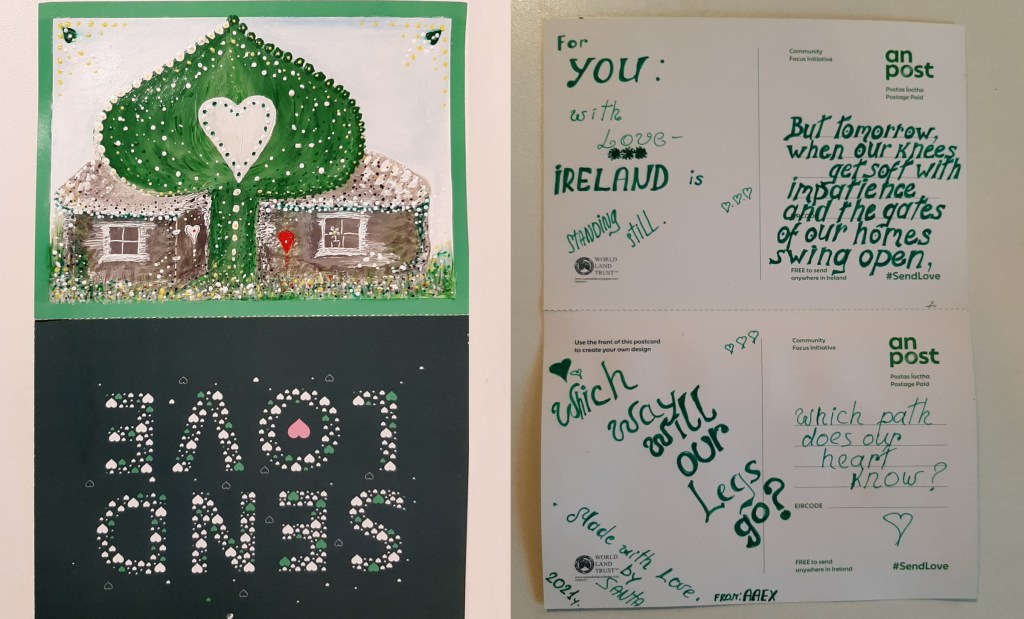 SEND
LOVE
For
YOU:
with
LOVE-
IRELAND is
STANDING
still.
WORLD
LAND
TRUST™
Community
Focus Initiative
an
post
Postas Íoctha
Postage Paid
But tomorrow,
when our knees
get soft with
impatience
and the gates
of our homes
swing open,
FREE to send
anywhere in Ireland
#SendLove
Use the front of this postcard
to create your own design
Which
way
will
our
Legs
go?
Made with Love.
by
SANTA
2021y.
FROM: AAEX
WORLD
LAND
TRUST™
Community
Focus Initiative
an
post
Postas Íoctha
Postage Paid
Which path
does our
heart
know?
EIRCODE
FREE to send
anywhere in Ireland
#SendLove